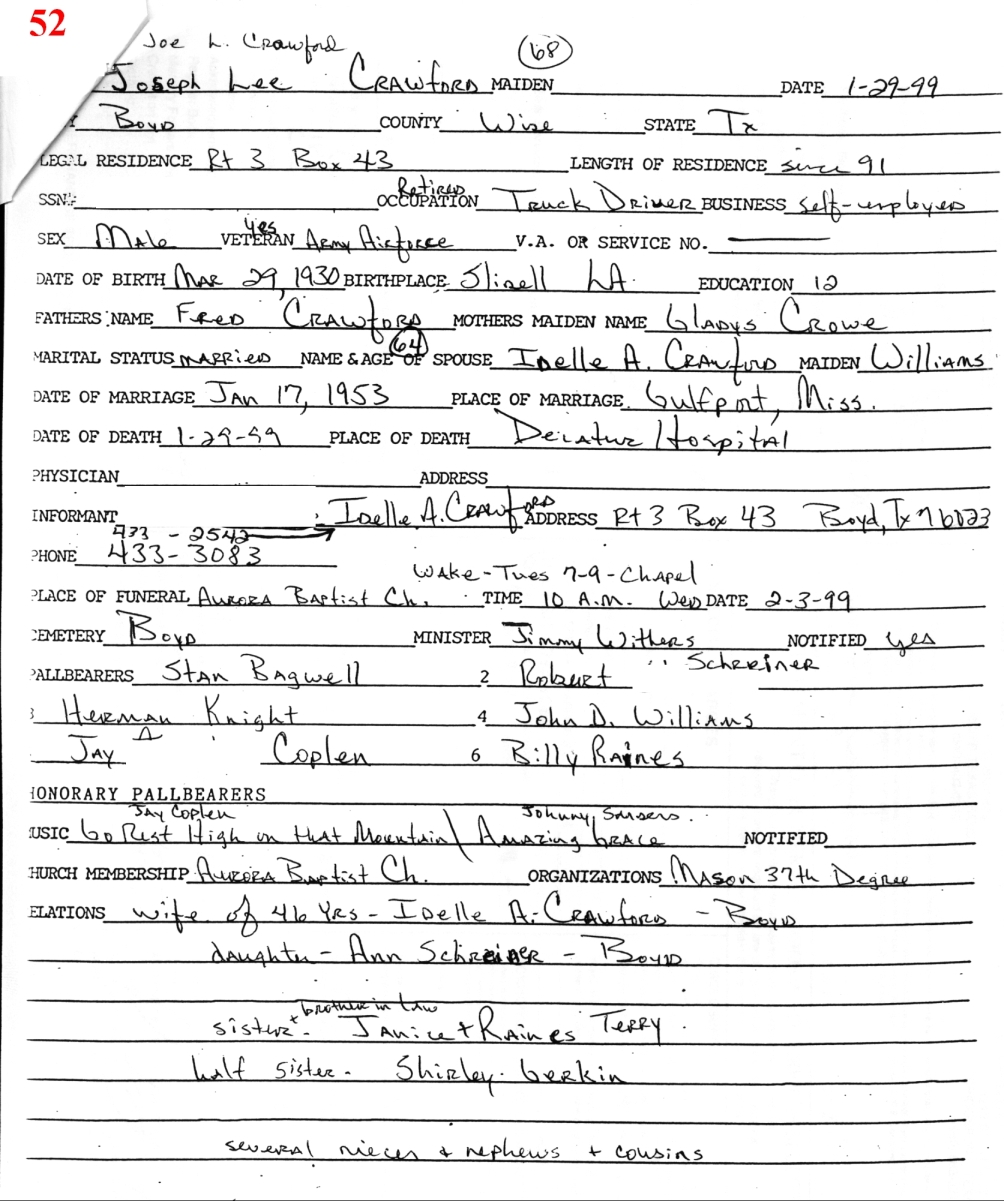 52
Joe L. Crawford
68
Joseph Lee Crawford MAIDEN DATE 1-29-99
Boyd COUNTY Wise STATE Tx
LEGAL RESIDENCE Rt 3 Box 43 LENGTH OF RESIDENCE since 91
SSN# Retired OCCUPATION Truck Driver BUSINESS self-employed
SEX Male yes VETERAN Army Airforce V.A. OR SERVICE NO. —
DATE OF BIRTH Mar 29, 1930 BIRTHPLACE Slidell LA. EDUCATION 12
FATHERS NAME Fred Crawford MOTHERS MAIDEN NAME Gladys Crowe
MARITAL STATUS married NAME & AGE OF SPOUSE 64 Idelle A. Crawford MAIDEN Williams
DATE OF MARRIAGE Jan 17, 1953 PLACE OF MARRIAGE Gulfport, Miss.
DATE OF DEATH 1-29-99 PLACE OF DEATH Decatur Hospital
PHYSICIAN ADDRESS
INFORMANT Idelle A. Crawford ADDRESS Rt 3 Box 43 Boyd, Tx 76023
433-2542
PHONE 433-3083
Wake-Tues 7-9-Chapel
PLACE OF FUNERAL Aurora Baptist Ch. TIME 10 A.M. Wed DATE 2-3-99
CEMETERY Boyd MINISTER Jimmy Withers NOTIFIED yes
PALLBEARERS Stan Bagwell 2 Robert Schreiner
3 Herman Knight 4 John D. Williams
Jay Coplen 6 Billy Raines
HONORARY PALLBEARERS
Jay Coplen Johnny Sanders.
MUSIC Go Rest High on that Mountain / Amazing Grace NOTIFIED
CHURCH MEMBERSHIP Aurora Baptist Ch. ORGANIZATIONS Mason 37th Degree
RELATIONS wife of 46 yrs - Idelle A. Crawford - Boyd
daughter - Ann Schreiner - Boyd
+ brother in law
sister - Janice + Raines Terry
half sister - Shirley Gerkin
several nieces + nephews + cousins